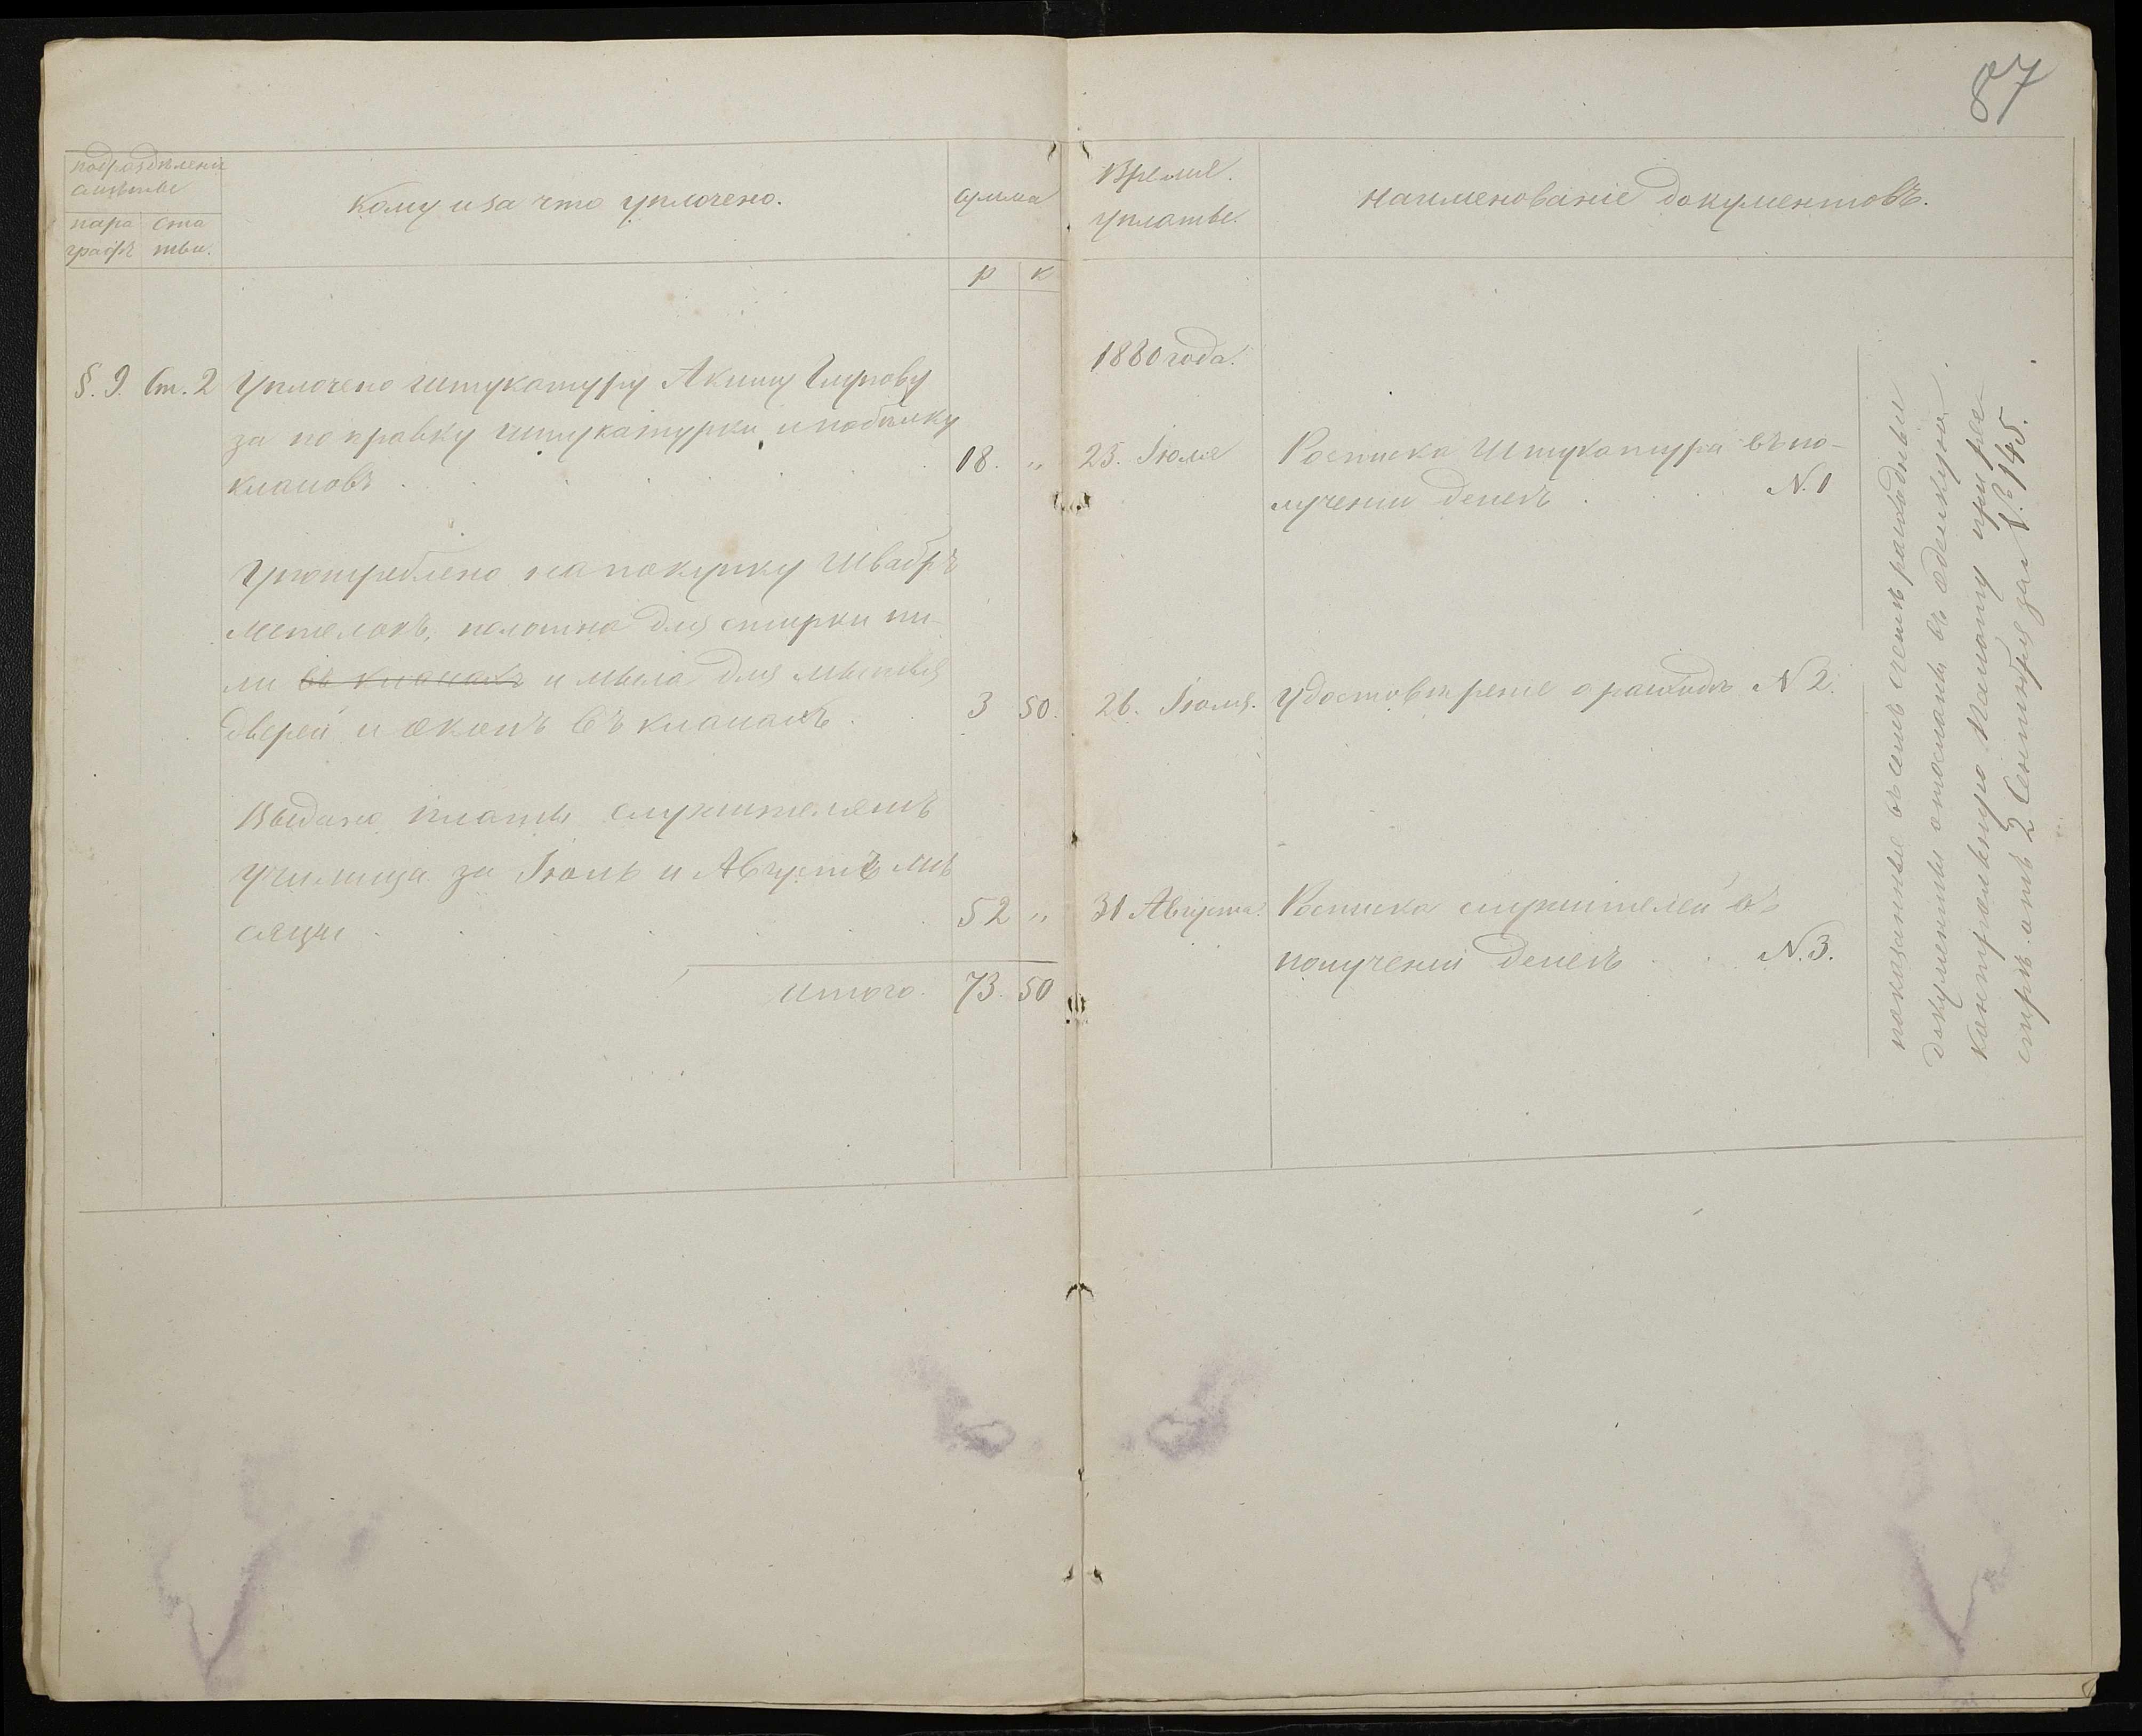 87
подраздѣленіе
смѣты
пара
графъ
ста
тьи.
Кому и за что уплочено.
сумма
р к
Время
уплаты.
Наименованіе документовъ.
1880 года.
§. 9. Ст. 2 Уплочено штукатуру Акиму
за поправку штукатурки и побѣлку
классовъ . . . . . 18. „
23. Іюля
Росписка Штукатура въ по-
лученіи денегъ . . . N. 1
Употреблено на покупку Швабръ
метелокъ, полотна для стирки пы-
ли въ классахъ и мыла для мытья
дверей и оконъ въ классахъ . 3 50.
26. Іюля. Удостовѣреніе о расходѣ N 2.
Выдано платы служителямъ
училища за Іюль и Августъ мѣ
сяцы . . . . . 52 „
31 Августа. Росписка служителей въ
полученіи денегъ . . N. 3.
Итого. 73. 50
показанные въ семъ счетѣ расходные
документы отосланы въ Одесскую
контрольную Палату при рее
стрѣ отъ 2 Сентября за N. 145.